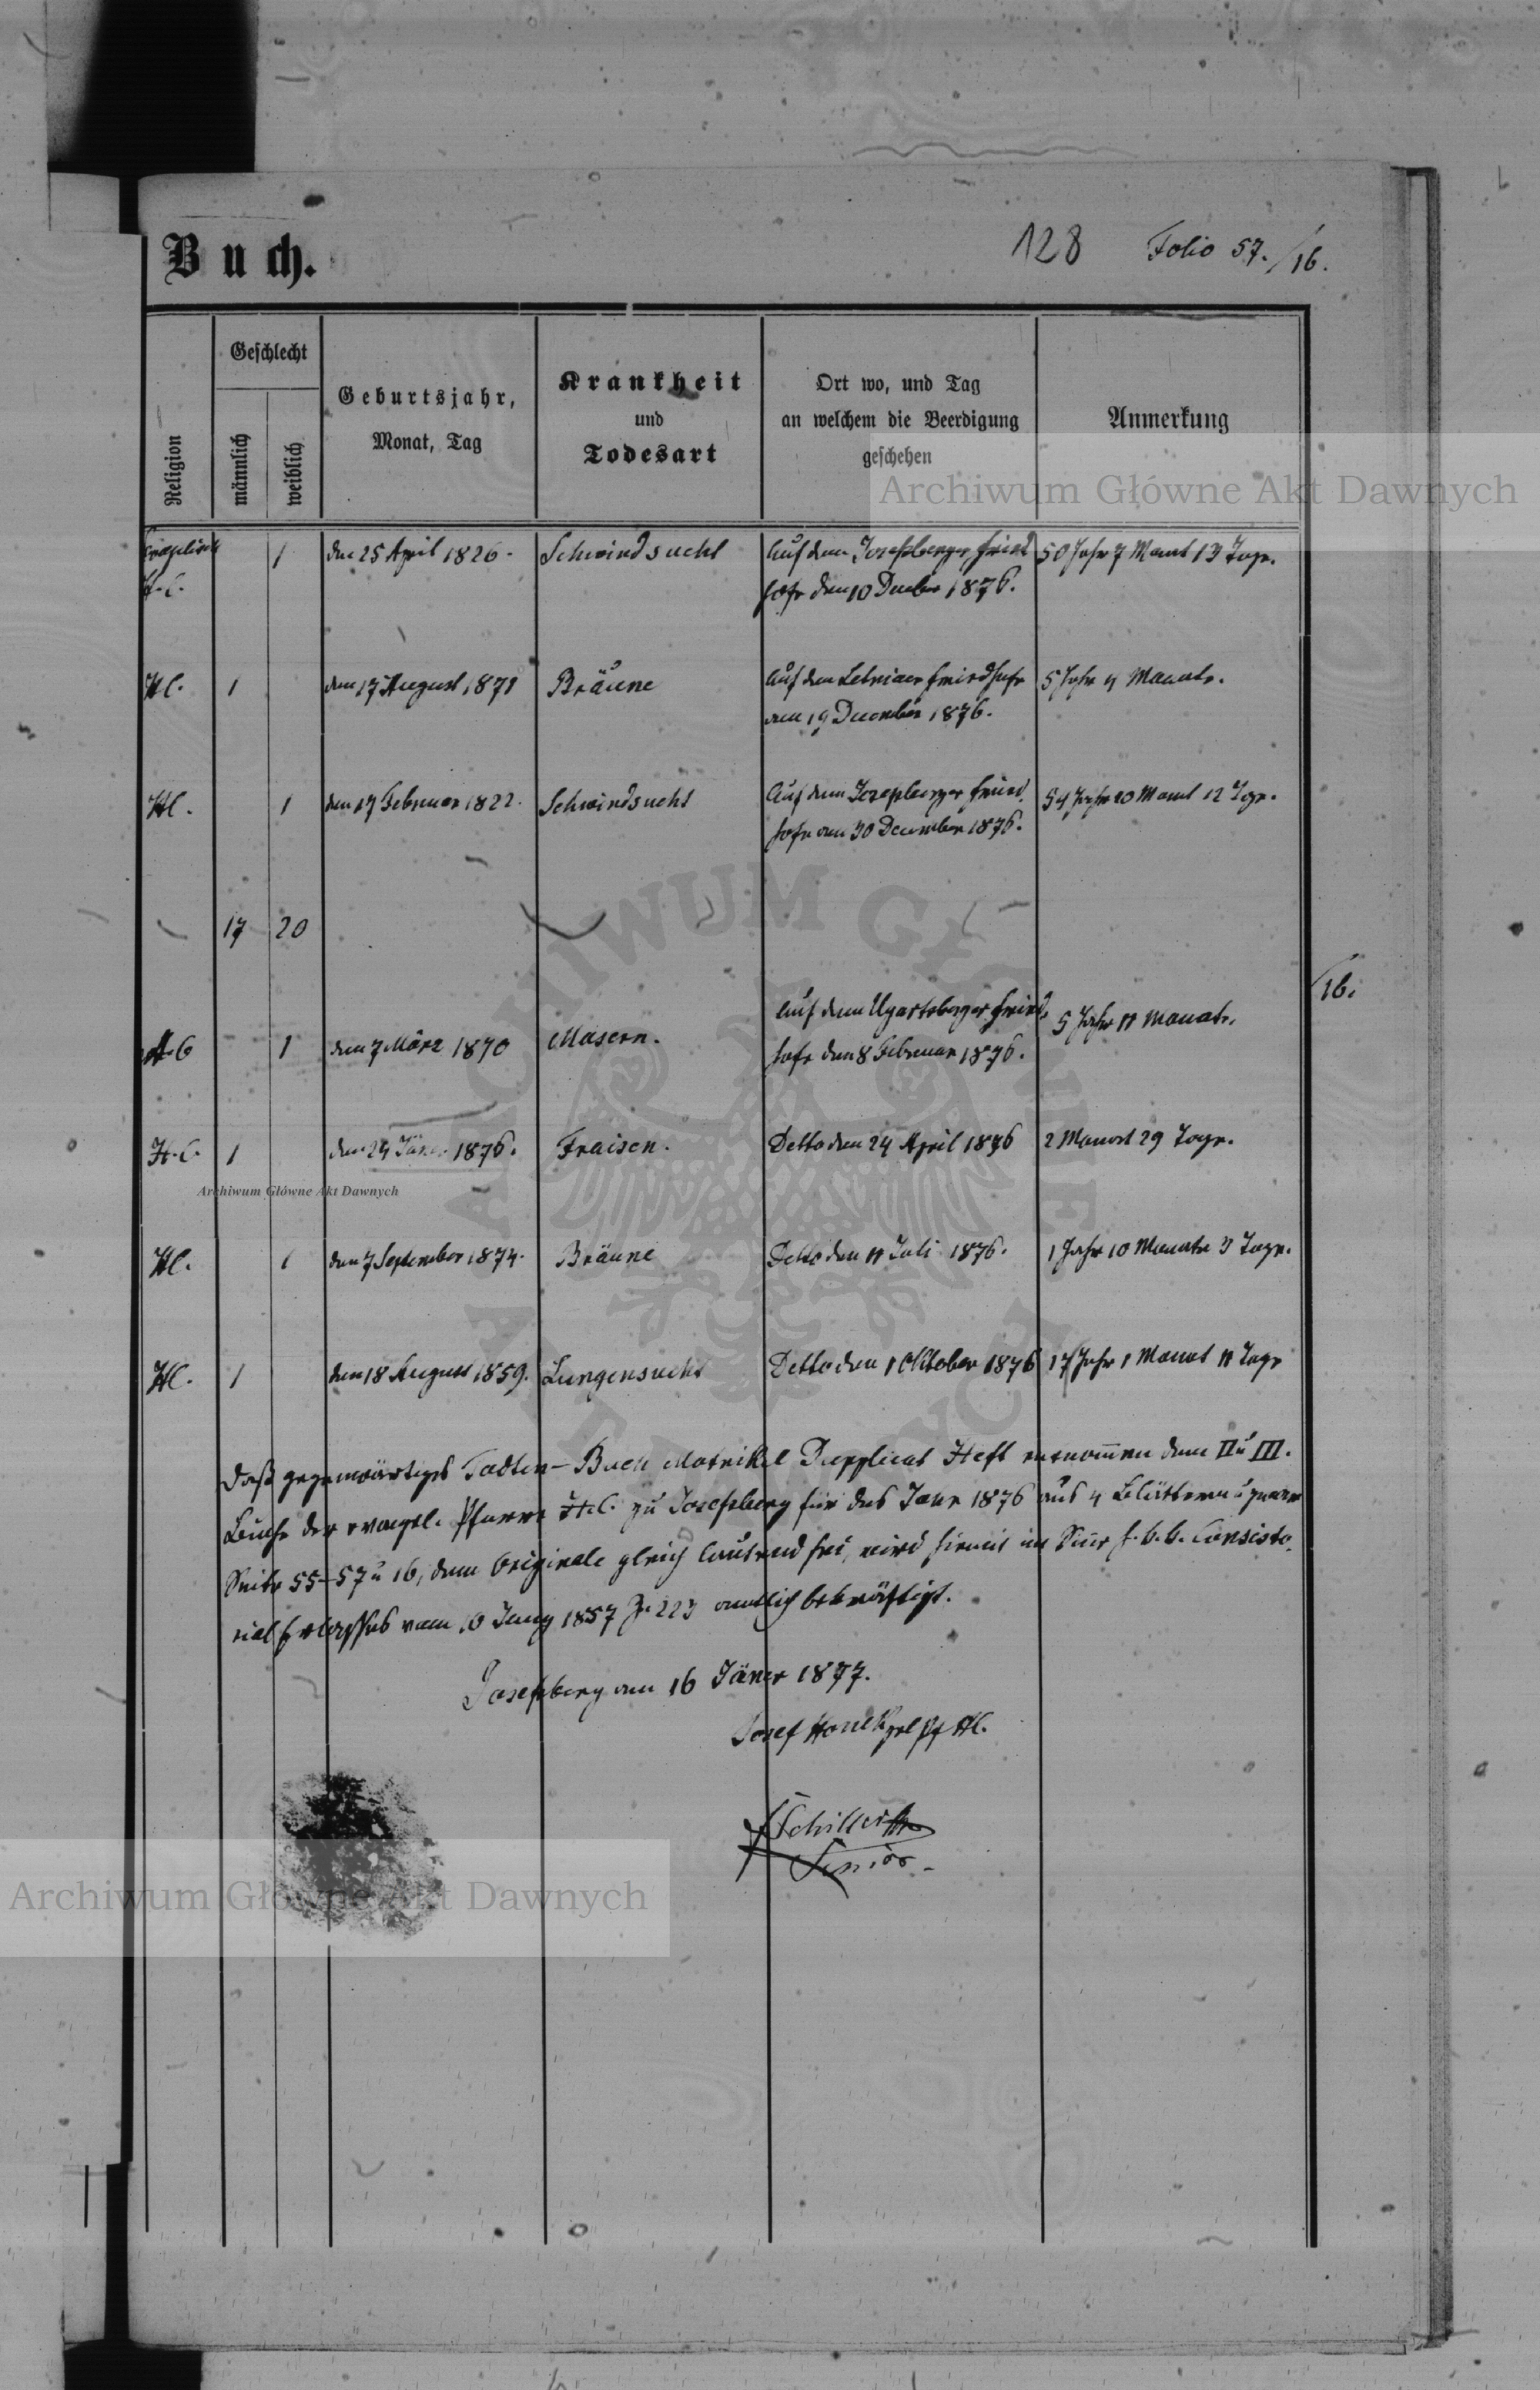 Buch.
128 Folio 57./16.
Religion
Geschlecht
männlich
weiblich
Geburtsjahr,
Monat, Tag
Krankheit
und
Todesart
Ort wo, und Tag
an welchem die Beerdigung
geschehen
Anmerkung
Archiwum Główne Akt Dawnych
Evangelisch 1 den 25 April 1826. Schwindsucht Auf dem Josefsberger Fried 50 Jahr 7 Monat 13 Tage.
H. C. hofe den 10 December 1876.
HC. 1 den 17 August 1871 Bräune Auf dem Friedhofe 5 Jahr 4 Monate.
am 19 December 1876.
HC. 1 den 17 Februar 1822. Schwindsucht Auf dem Josefsberger Fried 54 Jahre 10 Monat 12 Tage.
hofe am 30 December 1876.
17 20
16.
A. C 1 den 7 März 1870 Masern. Auf dem Ugartsberger Fried 5 Jahre 11 Monate.
hofe den 8 Februar 1876.
H. C. 1 den 24 Jäner 1876. Fraisen. Detto den 24 April 1876 2 Monat 29 Tage.
Archiwum Główne Akt Dawnych
HC. 1 den 7 September 1874. Bräune Detto den 11 Juli 1876. 1 Jahr 10 Monate 3 Tage.
HC. 1 den 18 August 1859. Lungensucht Detto den 1 Oktober 1876 17 Jahr 1 Monat 11 Tage
Daß gegenwärtiges Todten-Buch Matrikel Dupplicat Heft entnommen dem II u III.
Buche der evangel. Pfarre H.C. zu Josefsberg für das Jahr 1876 aus 4 Blättern u zwar
Seite 55-57 u 16, dem Originale gleich lautend sei, wird hiemit im Sinne h. k. k. Consisto
rial Erlasses vom 10 Juny 1857 Z. 223 amtlich bekräftigt.
Josefsberg am 16 Jäner 1877.
Josef HC.
Schiller
Senior
Archiwum Główne Akt Dawnych
ARCHIWUM GŁÓWNE
AKT DAWNYCH